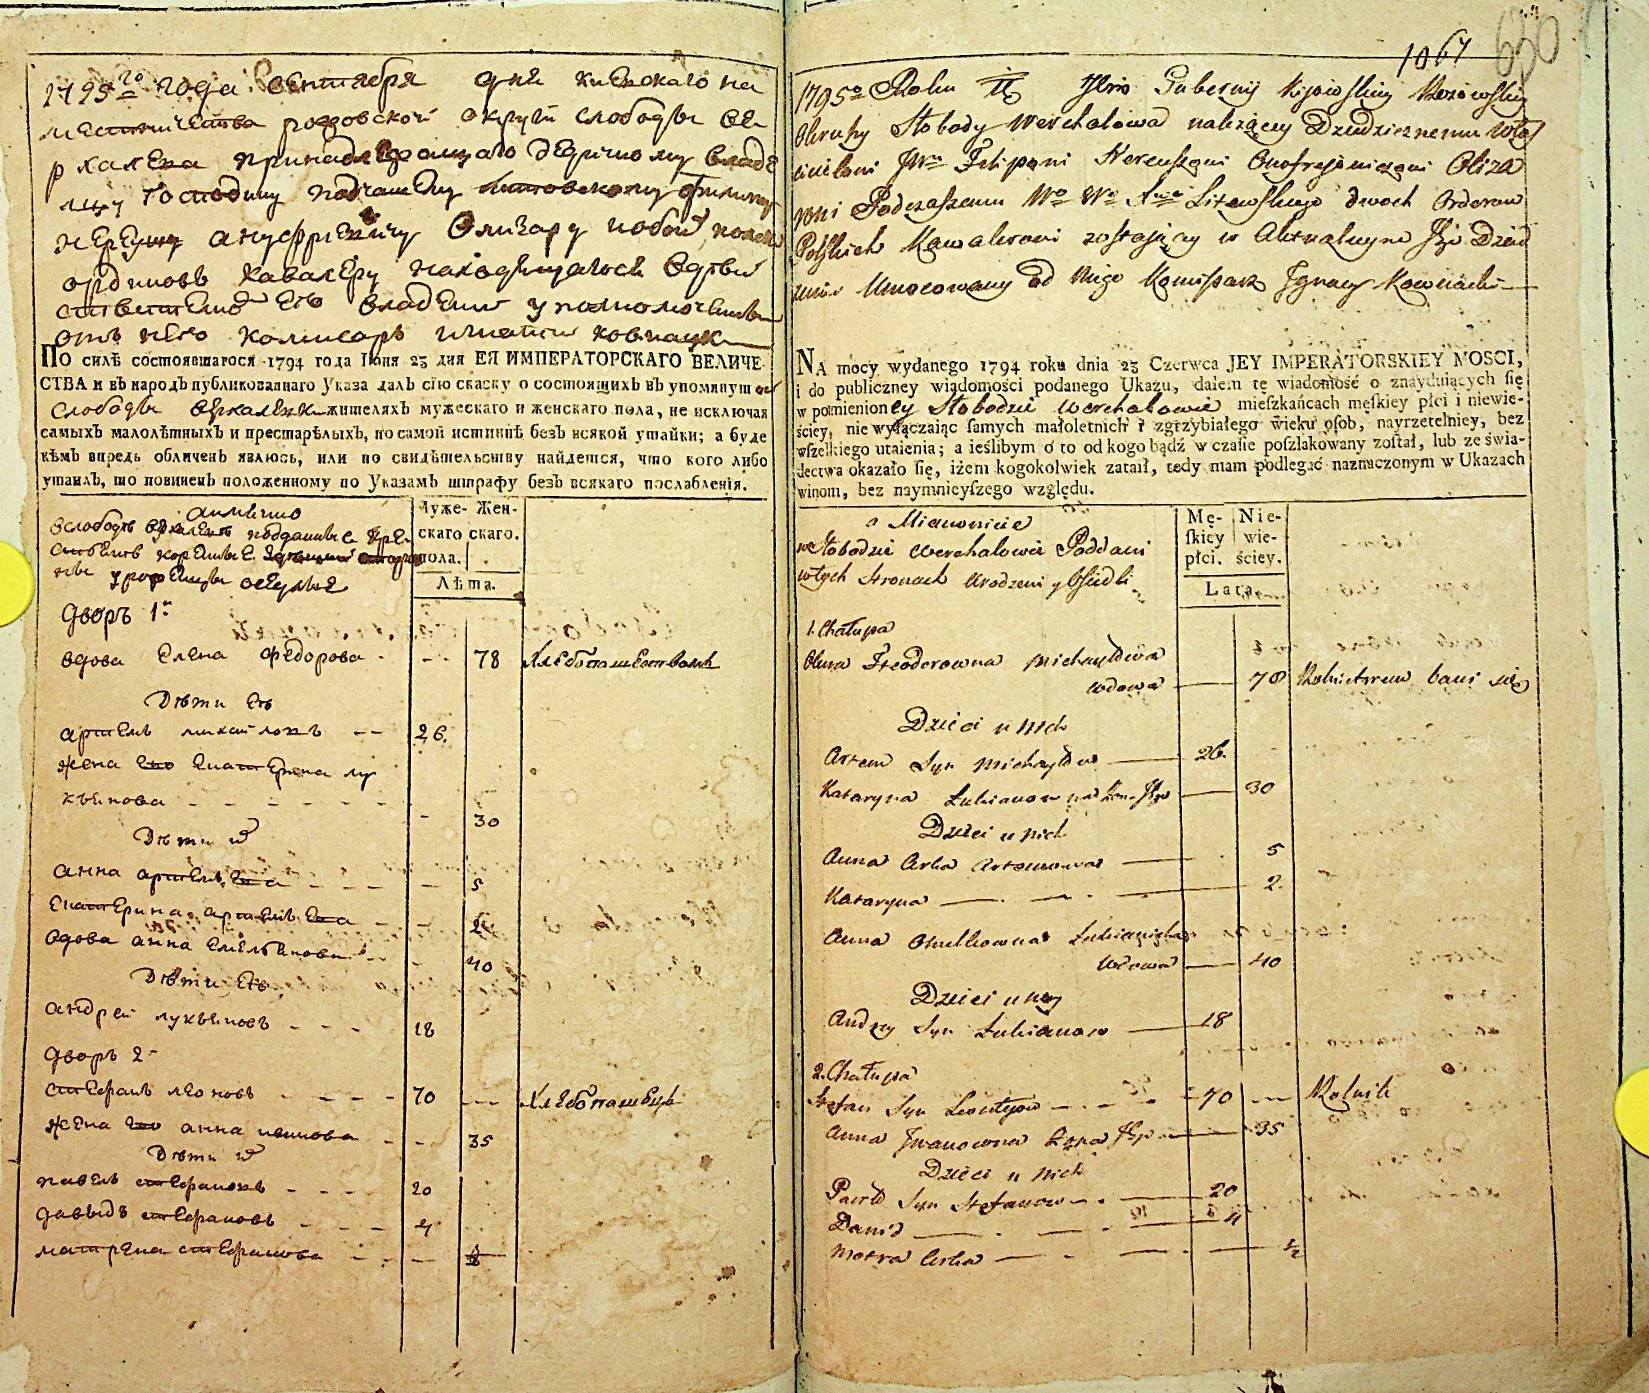 1795го года Сентября дня Киевскаго на
местничества округи слободы Ве
рхалева принадлежащаго дедичному владе
лцу Господину подчашему Литовскому Филипу
Ануфриевичу Олизару полск
ординовъ кавалеру находящагося в
ево владении уполномоченны
отъ него комисаръ Игнатий
По силѣ состоявшагося 1794 года Іюня 23 дня ЕЯ ИМПЕРАТОРСКАГО ВЕЛИЧЕ-
СТВА и въ народъ публикованнаго Указа далъ сію скаску о состоящихъ въ упомянутой
слободы жителяхъ мужескаго и женскаго пола, не исключая
самыхъ малолѣтныхъ и престарѣлыхъ, по самой истиннѣ безъ всякой утайки; а буде
кѣмъ впредь обличенъ явлюсь, или по свидѣтельству найдется, что кого либо
утаилъ, то повиненъ положенному по Указамъ штрафу безъ всякаго послабленія.
а имянно
Муже- Жен-
скаго скаго.
пола.
Лѣта.
дворъ 1й
вдова Елена Федорова 78 хлебопашествомъ
Дѣти Ея
артемъ михаиловъ 26.
жена его Екатерина лу
кьянова 30
Дѣти их
анна артемьева 5
Екатерина артемьева 2
вдова анна Емельянова 40
Дѣти Ея
андрей лукьяновъ 18
дворъ 2й
стефанъ леоновъ 70 хлебопашецъ
жена его анна иванова 35
Дѣти их
павелъ стефановъ 20
давыдъ стефановъ 4
матрена стефанова ½
1067
650
1795o Roku Gubernij Kijowskiey
Okruhy Słobody Werchalowa należącey Dziedzicznemu Włas
cicielowi JWu Filipowi Onofryiowiczowi Oliza
rowi Podczaszemu Litewskiego dwoch Orderow
Polskich Kawalerowi zostaiący w Aktualnym Jego Dzied
Umocowany od niego Komisarz Ignacy
NA mocy wydanego 1794 roku dnia 23 Czerwca JEY IMPERATORSKIEY MOSCI,
i do publiczney wiadomości podanego Ukazu, daiem tę wiadomość o znayduiących się
w pomienioney Słobodzie Werchalowie mieszkańcach męskiey płci i niewie-
ściey, nie wyłączaiąc samych małoletnich i zgrzybiałego wieku osob, nayrzetelniey, bez
wszelkiego utaienia; a ieślibym o to od kogo bądź w czasie poszlakowany został, lub ze świa-
dectwa okazało się, iżem kogokolwiek zataił, tedy mam podlegać naznaczonym w Ukazach
winom, bez naymnieyszego względu.
a Mianowicie
w Słobodzie Werchalowie Poddani
w tych stronach Urodzeni y Osiedli
Mę- Nie-
skiey wie-
płci. ściey.
Lata.
1. Chałupa
Olena Fteodorowna Michayłowa
wdowa 78 Rolnictwem bawi się
Dzieci u nich
Artem Syn Michayłow 26.
Kataryna Lukianowna Żona Jego 30
Dzieci u nich
Anna Corka Artemowa 5
Kataryna 2.
Anna
wdowa 40
Dzieci u niey
Andrzy Syn Lukianow 18
2. Chałupa
Stefan Syn Leontyow 70 Rolnik
Anna Iwanowna Żona Jego 35
Dzieci u nich
Paweł Syn Stefanow 20
Dawid 4
Motra Corka ½